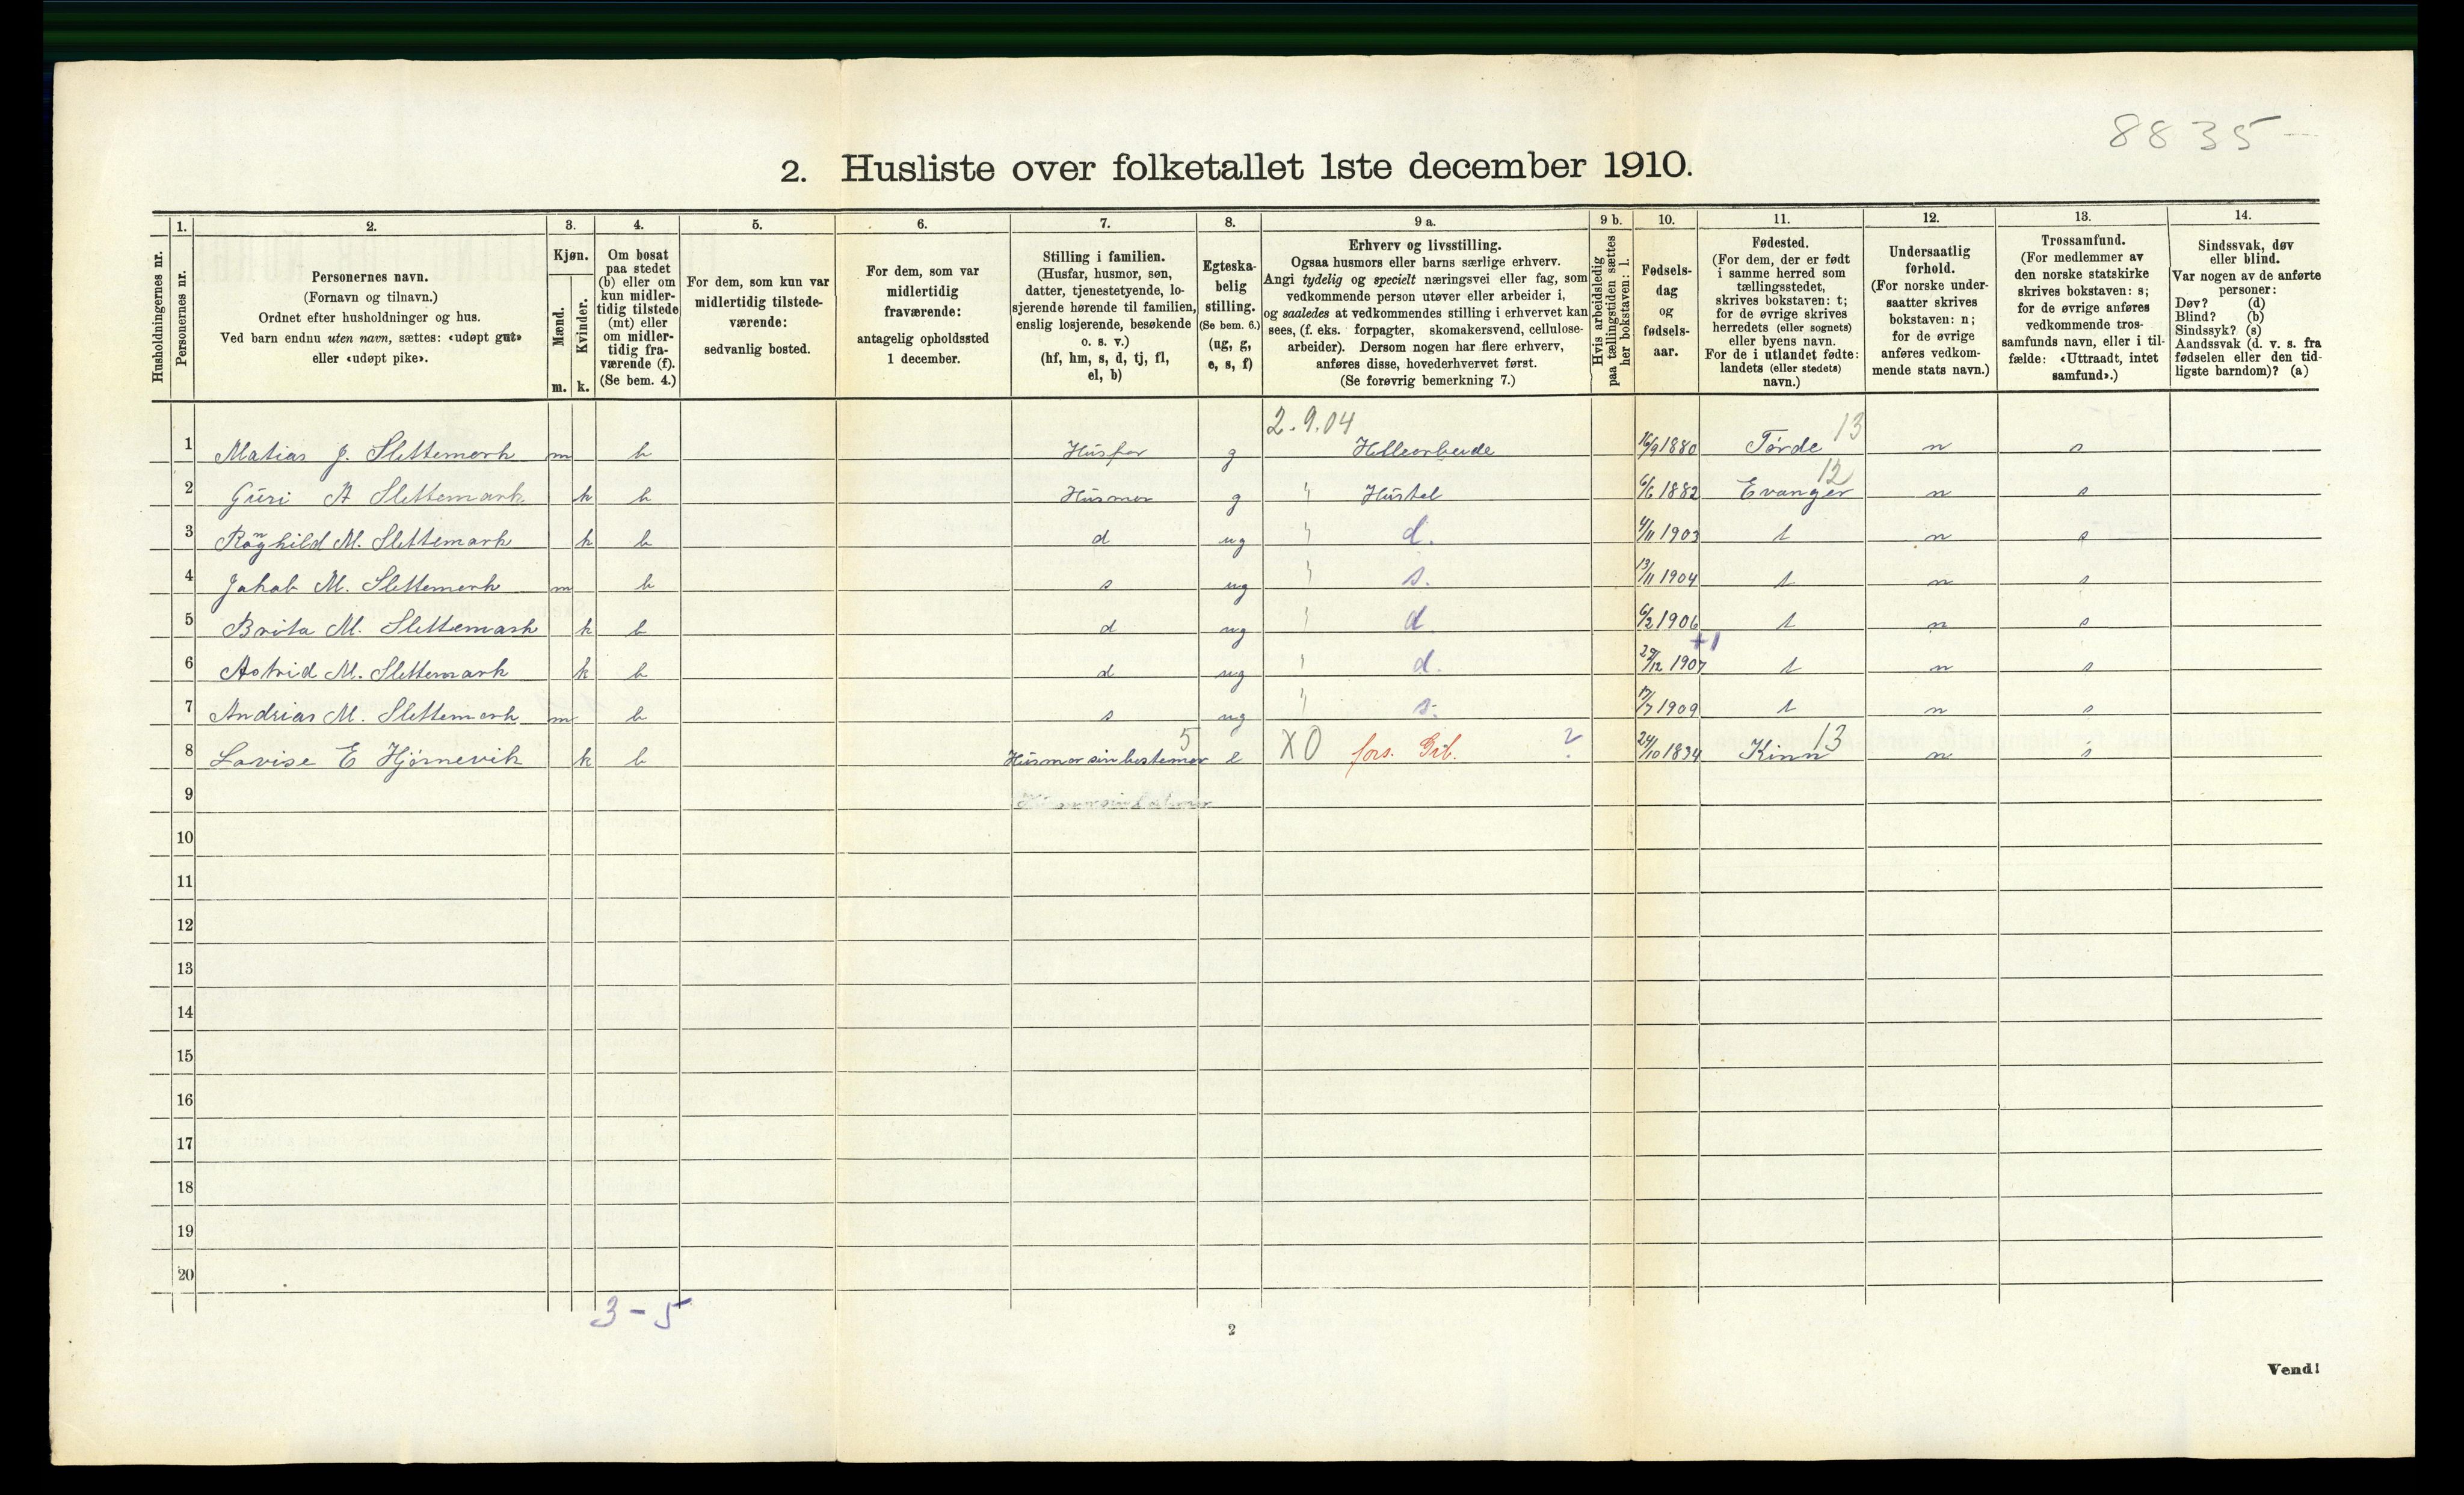 8835-
2. Husliste over folketallet 1ste december 1910.
Husholdningernes nr.
1.
Personernes nr.
2.
Personernes navn.
(Fornavn og tilnavn.)
Ordnet efter husholdninger og hus.
Ved barn endnu uten navn, sættes: «udøpt gut»
eller «udøpt pike».
3.
Kjøn.
Mænd.
m.
Kvinder.
k.
4.
Om bosat
paa stedet
(b) eller om
kun midler-
tidig tilstede
(mt) eller
om midler-
tidig fra-
værende (f).
(Se bem. 4.)
5.
For dem, som kun var
midlertidig tilstede-
værende:
sedvanlig bosted.
6.
For dem, som var
midlertidig
fraværende:
antagelig opholdssted
1 december.
7.
Stilling i familien.
(Husfar, husmor, søn,
datter, tjenestetyende, lo-
sjerende hørende til familien,
enslig losjerende, besøkende
o. s. v.)
(hf, hm, s, d, tj, fl,
el, b)
8.
Egteska-
belig
stilling.
(Se bem. 6.)
(ug, g,
e, s, f)
9 a.
Erhverv og livsstilling.
Ogsaa husmors eller barns særlige erhverv.
Angi tydelig og specielt næringsvei eller fag, som
vedkommende person utøver eller arbeider i,
og saaledes at vedkommendes stilling i erhvervet kan
sees, (f. eks. forpagter, skomakersvend, cellulose-
arbeider). Dersom nogen har flere erhverv,
anføres disse, hovederhvervet først.
(Se forøvrig bemerkning 7.)
9 b.
Hvis arbeidsledig
paa tællingstiden sættes
her bokstaven: l.
10.
Fødsels-
dag
og
fødsels-
aar.
11.
Fødested.
(For dem, der er født
i samme herred som
tællingsstedet,
skrives bokstaven: t;
for de øvrige skrives
herredets (eller sognets)
eller byens navn.
For de i utlandet fødte:
landets (eller stedets)
navn.)
12.
Undersaatlig
forhold.
(For norske under-
saatter skrives
bokstaven: n;
for de øvrige
anføres vedkom-
mende stats navn.)
13.
Trossamfund.
(For medlemmer av
den norske statskirke
skrives bokstaven: s;
for de øvrige anføres
vedkommende tros-
samfunds navn, eller i til-
fælde: «Uttraadt, intet
samfund».)
14.
Sindssvak, døv
eller blind.
Var nogen av de anførte
personer:
Døv? (d)
Blind? (b)
Sindssyk? (s)
Aandssvak (d. v. s. fra
fødselen eller den tid-
ligste barndom)? (a)
2.9.04 13
1 Matias J. Slettemark m b Husfar g Hellearbeide 16/9 1880 Førde n s
12
2 Guri A Slettemark k b Husmor g " Hustel 6/6 1882 Evanger n s
3 Ranghild M. Slettemark k b d ug " d. 4/11 1903 t n s
4 Jakob M. Slettemark m b s ug " s. 13/11 1904 t n s
5 Brita M. Slettemark k b d ug " d 6/2 1906 t n s
+1
6 Astrid M. Slettemark k b d ug " d. 29/12 1907 t n s
7 Andrias M. Slettemark m b s ug " s. 17/7 1909 t n s
5 13
8 Lovise E Hjørnevik k b Husmor sin bestemor e X0 fors. Grb. ? 24/10 1834 Kinn n s
9
10
11
12
13
14
15
16
17
18
19
20
3-5
2
Vend!